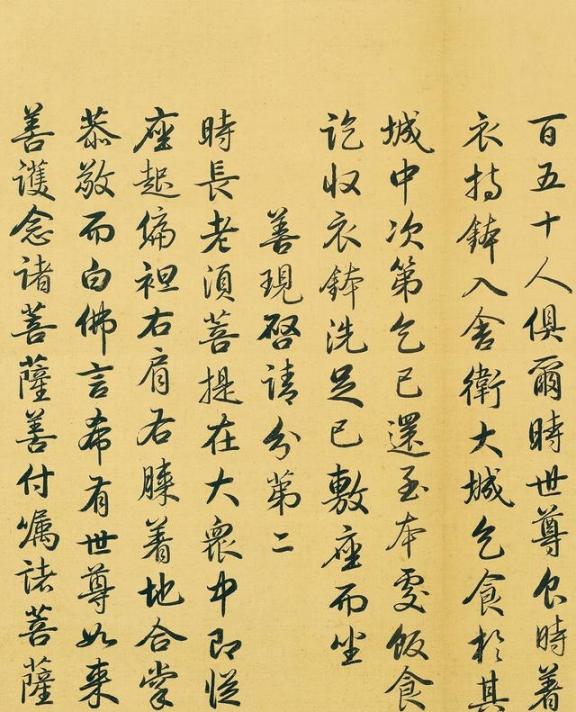 百五十人俱爾時世尊食時著
衣持鉢入舍衛大城乞食於其
城中次第乞已還至本處飯食
訖收衣鉢洗足已敷座而坐
善現啓請分第二
時長老須菩提在大衆中即從
座起偏袒右肩右膝着地合掌
恭敬而白佛言希有世尊如来
善護念諸菩薩善付囑諸菩薩